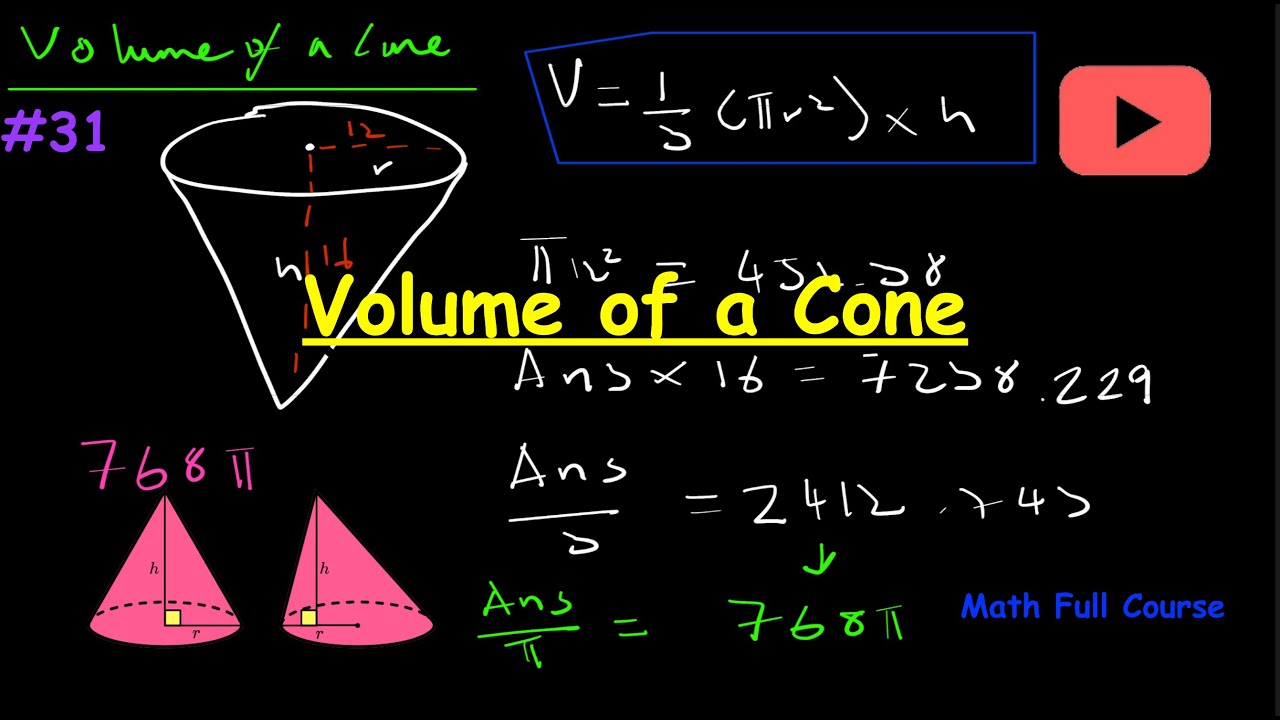 Volume of a Cone
#31
V = 1/3 (πr²) × h
12
r
h 16
π12² = 452.38
Volume of a Cone
Ans × 16 = 7238.229
768π
Ans/3 = 2412.743
h
r
h
r
Ans/π = 768π
Math Full Course